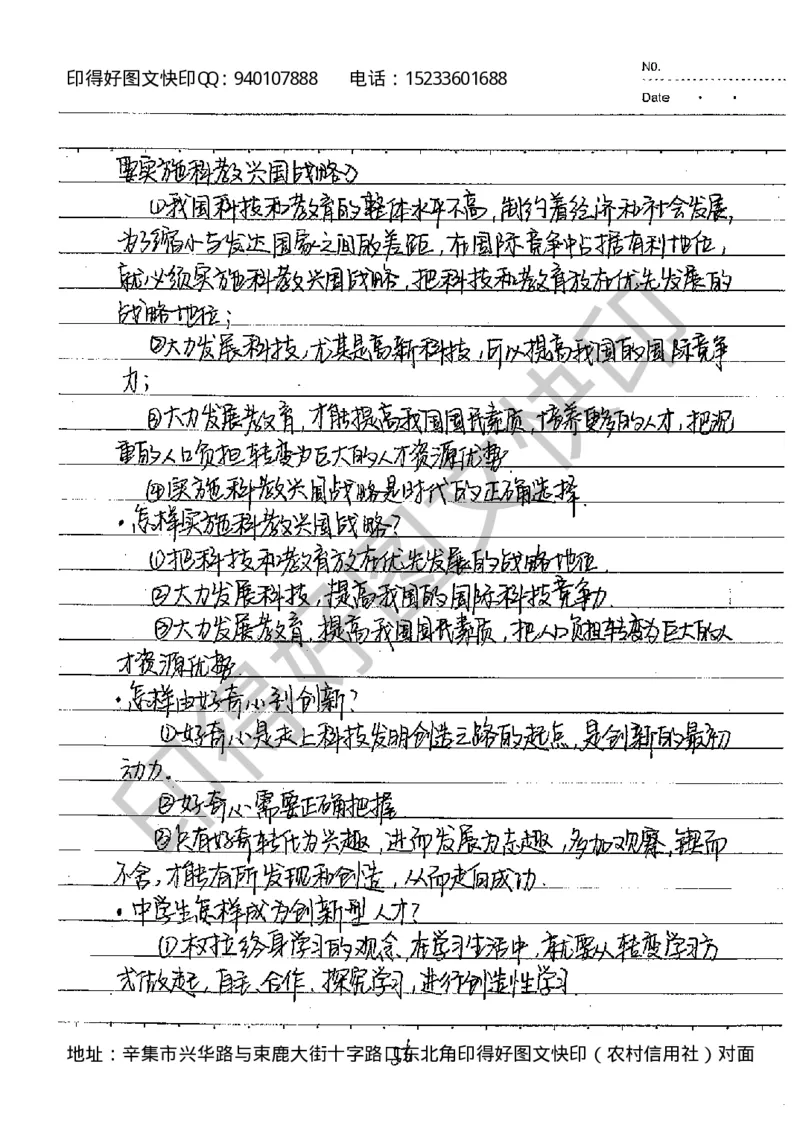 印得好图文快印QQ：940107888 电话：15233601688
No.
Date
要实施科教兴国战略？
①我国科技和教育的整体水平不高，制约着经济和社会发展，
为了缩小与发达国家之间的差距，在国际竞争中占据有利地位，
就必须实施科教兴国战略，把科技和教育放在优先发展的
战略地位；
②大力发展科技，尤其是高新科技，可以提高我国的国际竞争
力；
③大力发展教育，才能提高我国国民素质，培养更多的人才，把沉
重的人口负担转变为巨大的人才资源优势.
④实施科教兴国战略是时代的正确选择.
·怎样实施科教兴国战略？
①把科技和教育放在优先发展的战略地位.
②大力发展科技，提高我国的国际科技竞争力.
③大力发展教育，提高我国国民素质，把人口负担转变为巨大的人
才资源优势
·怎样由好奇心到创新？
①好奇心是走上科技发明创造之路的起点，是创新的最初
动力。
②好奇心需要正确把握
③只有好奇转化为兴趣，进而发展为志趣，多加观察，锲而
不舍，才能有所发现和创造，从而走向成功.
·中学生怎样成为创新型人才？
①树立终身学习的观念，在学习生活中，就要从转变学习方
式做起，自主、合作、探究学习，进行创造性学习.
地址：辛集市兴华路与束鹿大街十字路口东北角印得好图文快印（农村信用社）对面
印得好图文快印